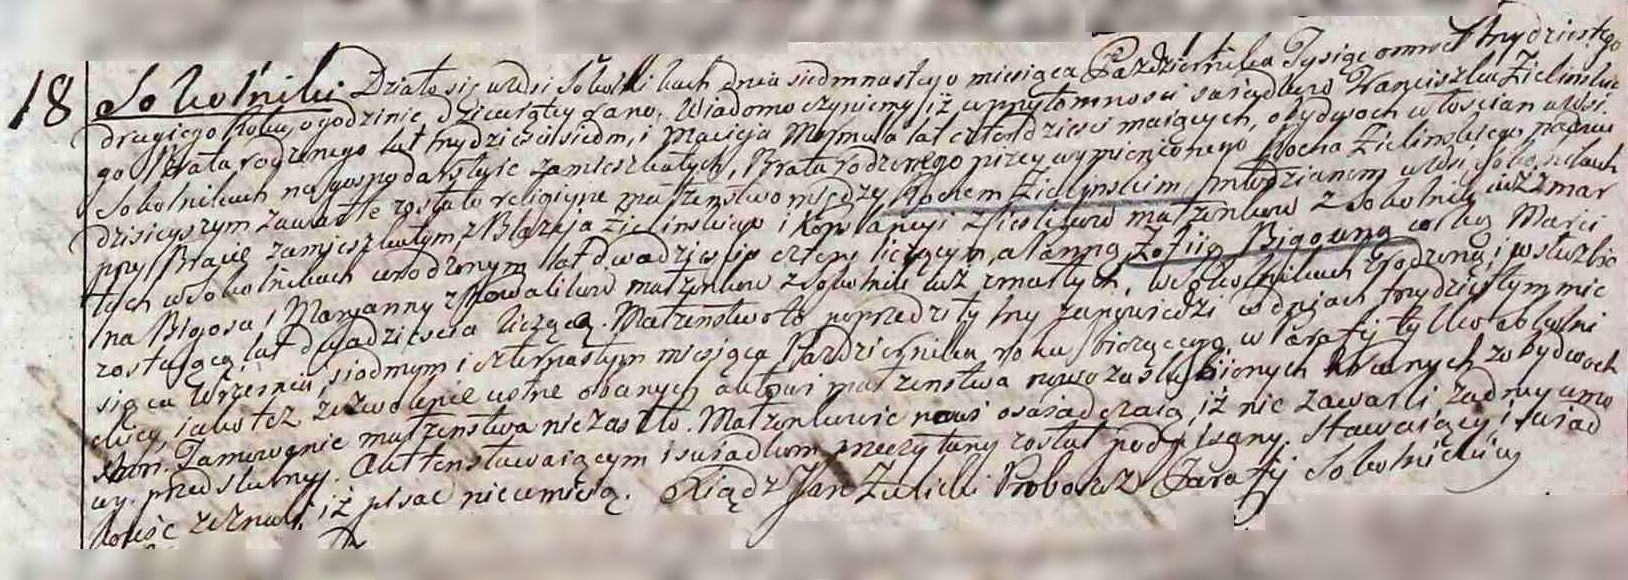 18 Sokolniki Działo się w wsi Sokolnikach dnia siedmnastego miesiąca Października Tysiąc ośmset trzydziestego
drugiego Roku, o godzinie dziewiątey z rana. Wiadomo czyniemy, iż w przytomności świadków Franciszka Zielińskie
go Brata rodzonego lat trzydzieści siedm, i Macieja lat czterdzieści maiących, obydwoch włościan w wsi
Sokolnikach na gospodarstwie zamieszkałych, Brata rodzonego przez wymienionego Rocha Zielińskiego na dniu
dzisieyszym zawarte zostało religijne małżeństwo między Rochem Zielińskim, młodzianem w wsi Sokolnikach
przy Bracie zamieszkałym, z Błażeja Zielińskiego i Konstancyi małżonków z Sokolnik już zmar
łych w Sokolnikach urodzonym lat dwadzieścia cztery liczącym, a Panną Zofiią Bigosną córką Marci
na Bigosa, i Maryanny z Kowalików małżonków z Sokolnik już zmarłych, w Sokolnikach zrodzoną, i w służbie
zostającą lat dwadzieścia liczącą. Małżeństwo to poprzedziły trzy zapowiedzi w dniach trzydziestym mie
siąca Września, siodmym i czternastym miesiąca Października roku bieżącego w Parafij tylko Sokolni
ckiey, iako też zezwolenie ustne obecnych aktowi małżeństwa nowozaślubionych z obydwoch
stron. Tamowanie małżeństwa nie zaszło. Małżonkowie nowi oświadczaią, iż nie zawarli żadney umo
wy przedślubney. Akt ten stawaiącym i świadkom przeczytany został podpisany. Stawaiący i świad
kowie zeznali, iż pisać nie umieią. Xiądz Jan Żulicki Proboszcz Parafij Sokolnickiey